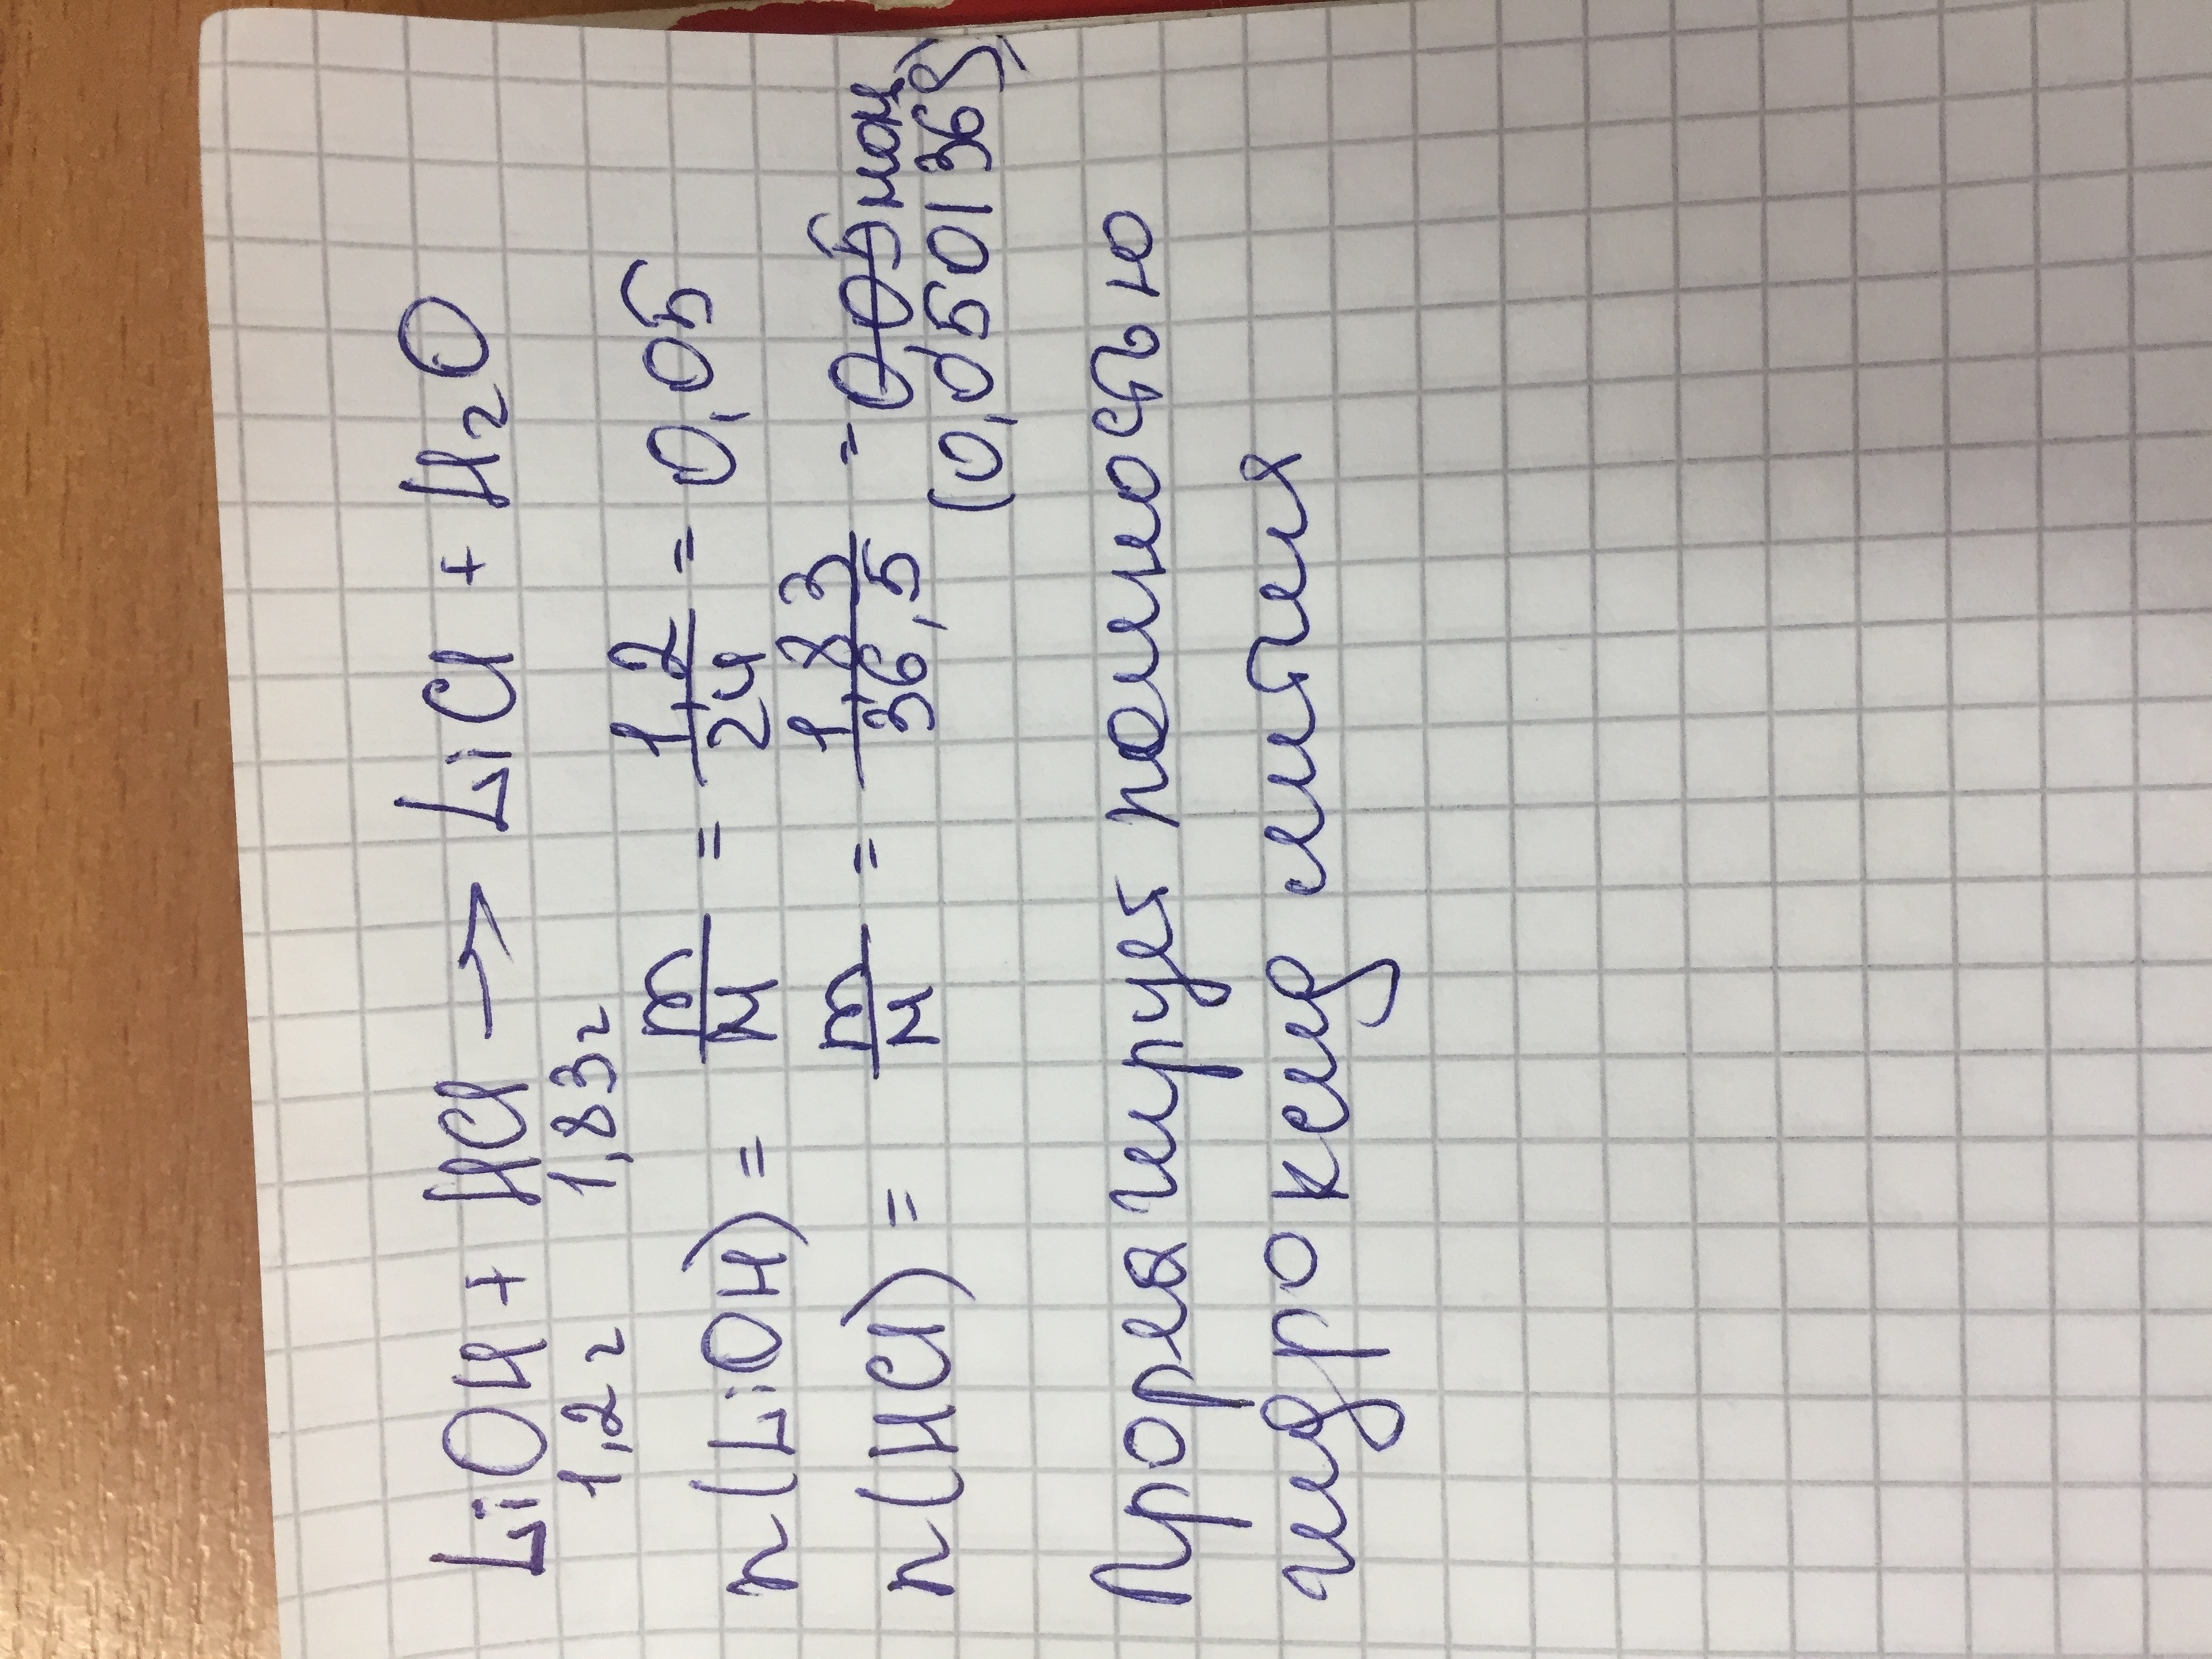 LiOH + HCl → LiCl + H₂O
1,2 г 1,83 г
n(LiOH) = m/M = 1,2/24 = 0,05
n(HCl) = m/M = 1,83/36,5 = 0,05 мол
(0,0501369)
Прореагирует полностью
гидроксид лития